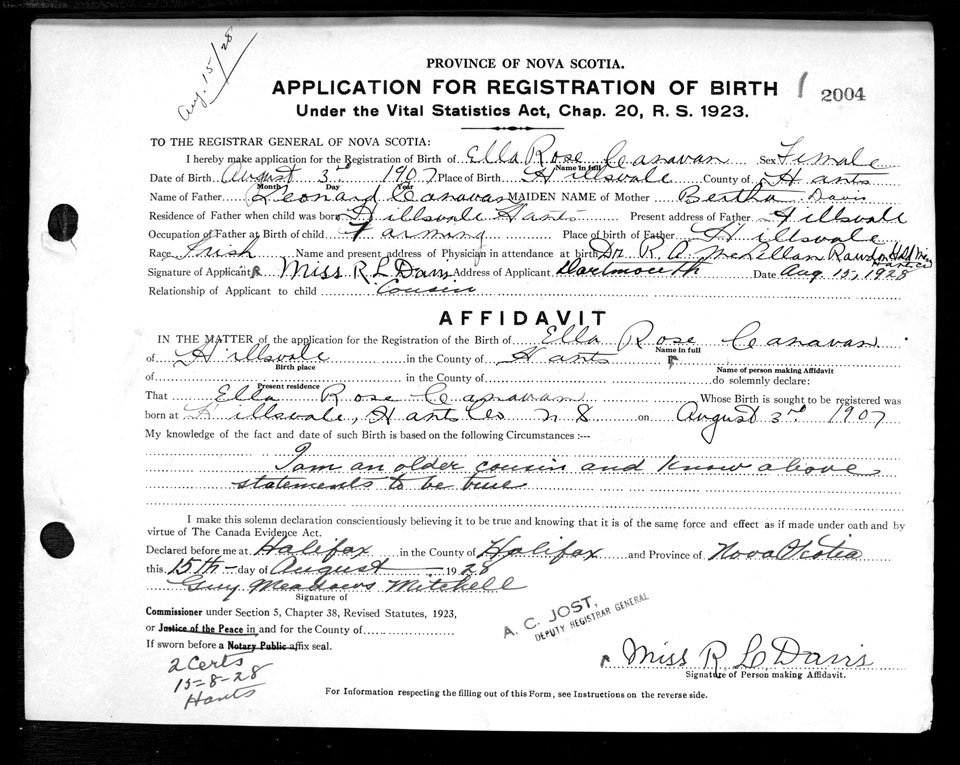 Aug. 15/28
PROVINCE OF NOVA SCOTIA.
APPLICATION FOR REGISTRATION OF BIRTH
2004
Under the Vital Statistics Act, Chap. 20, R. S. 1923.
TO THE REGISTRAR GENERAL OF NOVA SCOTIA:
I hereby make application for the Registration of Birth of Ella Rose Canavan Sex Female
Name in full
Date of Birth August 3rd 1907 Place of Birth Hillsvale County of Hants
Month Day Year
Name of Father Leonard Canavan MAIDEN NAME of Mother Bertha Davis
Residence of Father when child was born Hillsvale Hants Present address of Father Hillsvale
Occupation of Father at Birth of child Farming Place of birth of Father Hillsvale
Race Irish Name and present address of Physician in attendance at birth Dr. R. A. McLellan Rawdon Gold Mines
Hants Co
Signature of Applicant Miss R L Davis Address of Applicant Dartmouth Date Aug 15, 1928
Relationship of Applicant to child Cousin
AFFIDAVIT
IN THE MATTER of the application for the Registration of the Birth of Ella Rose Canavan
Name in full
of Hillsvale in the County of Hants
Birth place Name of person making Affidavit
of in the County of do solemnly declare:
Present residence
That Ella Rose Canavan Whose Birth is sought to be registered was
born at Hillsvale, Hants Co N S on August 3rd 1907
My knowledge of the fact and date of such Birth is based on the following Circumstances :—
I am an older cousin and know above
statements to be true
I make this solemn declaration conscientiously believing it to be true and knowing that it is of the same force and effect as if made under oath and by
virtue of The Canada Evidence Act.
Declared before me at Halifax in the County of Halifax and Province of Nova Scotia
this 15th day of August 1928
Guy Meadows Mitchell
Signature of
Commissioner under Section 5, Chapter 38, Revised Statutes, 1923,
or Justice of the Peace in and for the County of
If sworn before a Notary Public affix seal.
A. C. JOST,
DEPUTY REGISTRAR GENERAL
2 Certs
15-8-28
Hants
Miss R L Davis
Signature of Person making Affidavit.
For Information respecting the filling out of this Form, see Instructions on the reverse side.